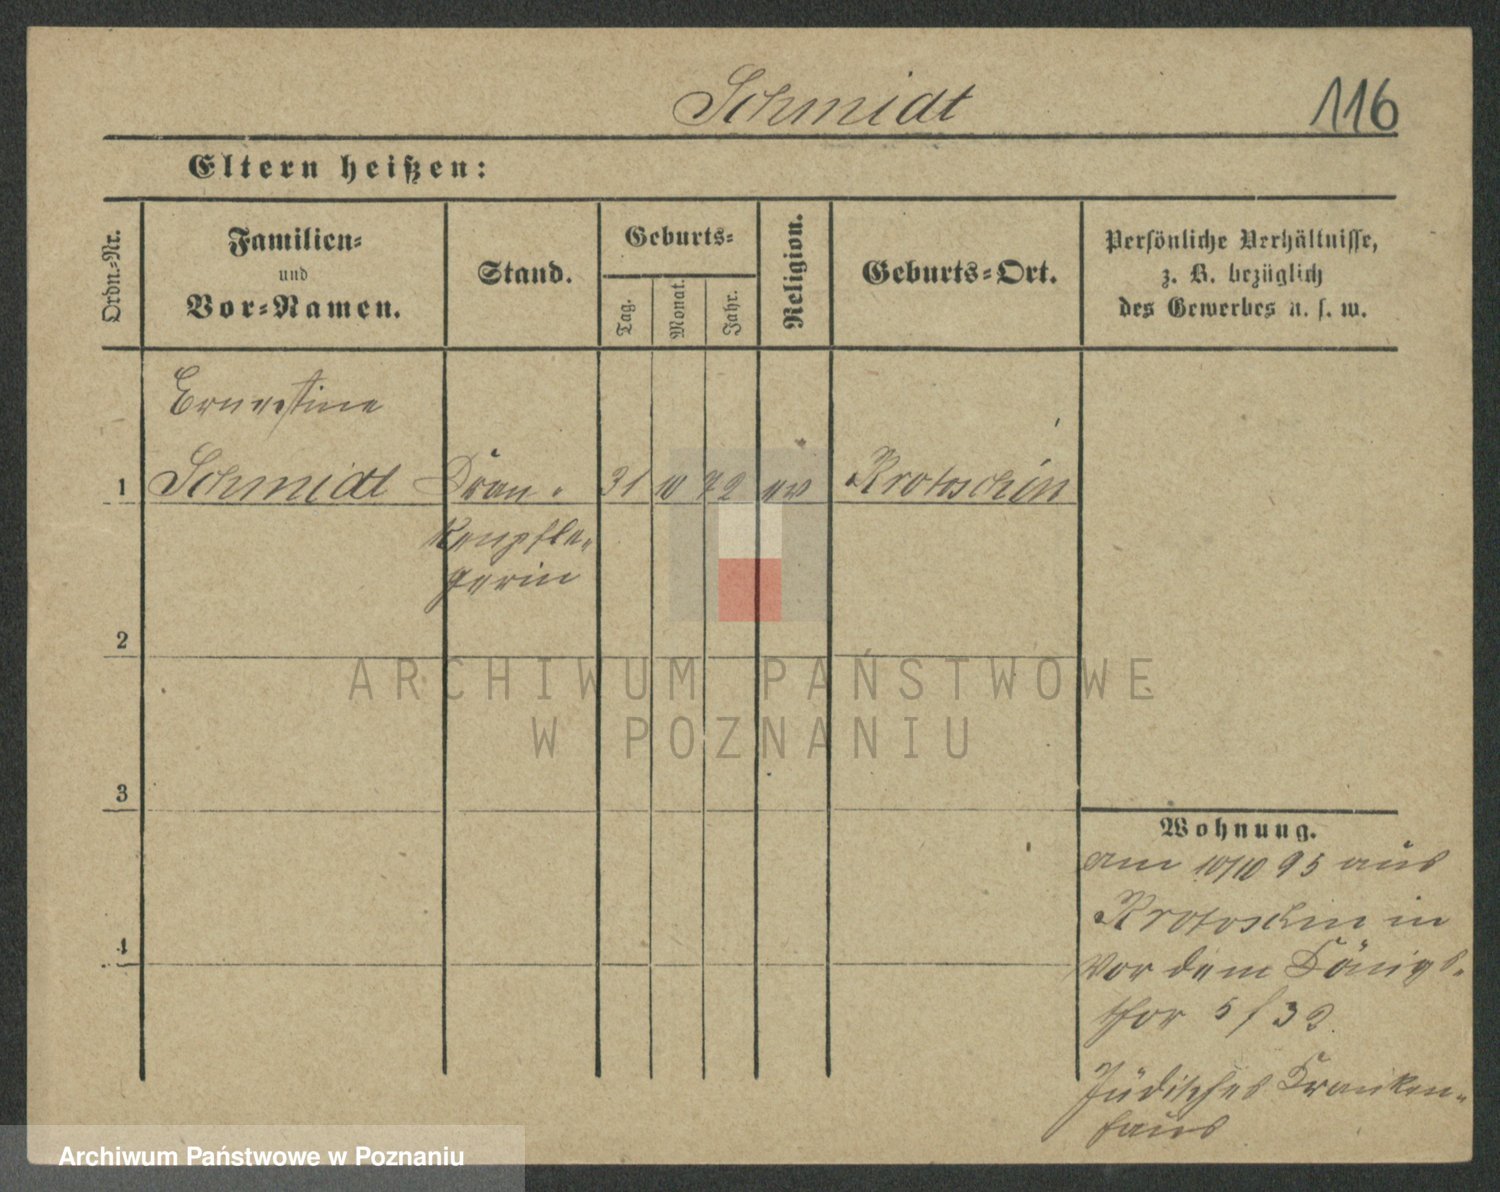 Schmidt
116
Eltern heißen:
Ordn.-Nr.
Familien-
und
Vor-Namen.
Stand.
Geburts-
Tag.
Monat.
Jahr.
Religion.
Geburts-Ort.
Persönliche Verhältnisse,
z. B. bezüglich
des Gewerbes u. s. w.
Ernestine
1 Schmidt Kran- 31 10 72 ev Krotoschin
kenpfle-
gerin
2
3
4
Wohnung.
am 10/10 95 aus
Krotoschin in
Vor dem Königs-
thor 5/32.
Jüdisches Kranken-
haus
ARCHIWUM PAŃSTWOWE
W POZNANIU
Archiwum Państwowe w Poznaniu